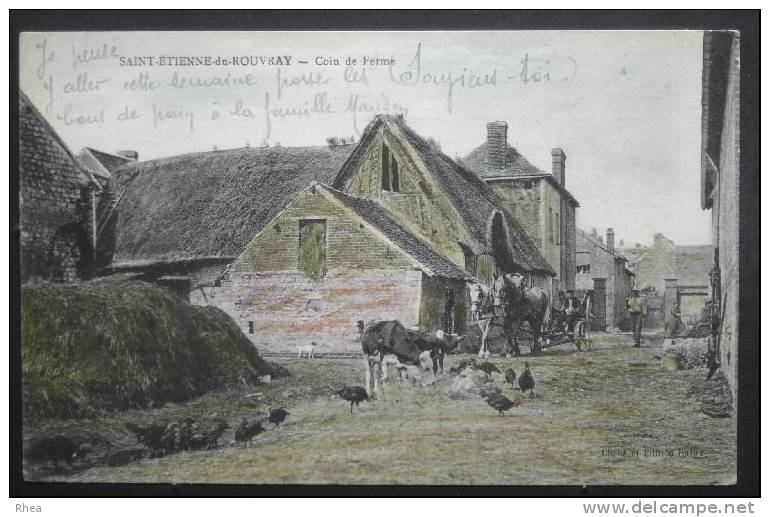 SAINT-ÉTIENNE-du-ROUVRAY — Coin de Ferme
Je pense
y aller cette semaine porter les
bons de pain à la famille
Cliché et Edition
Rhea
http://www.delcampe.net